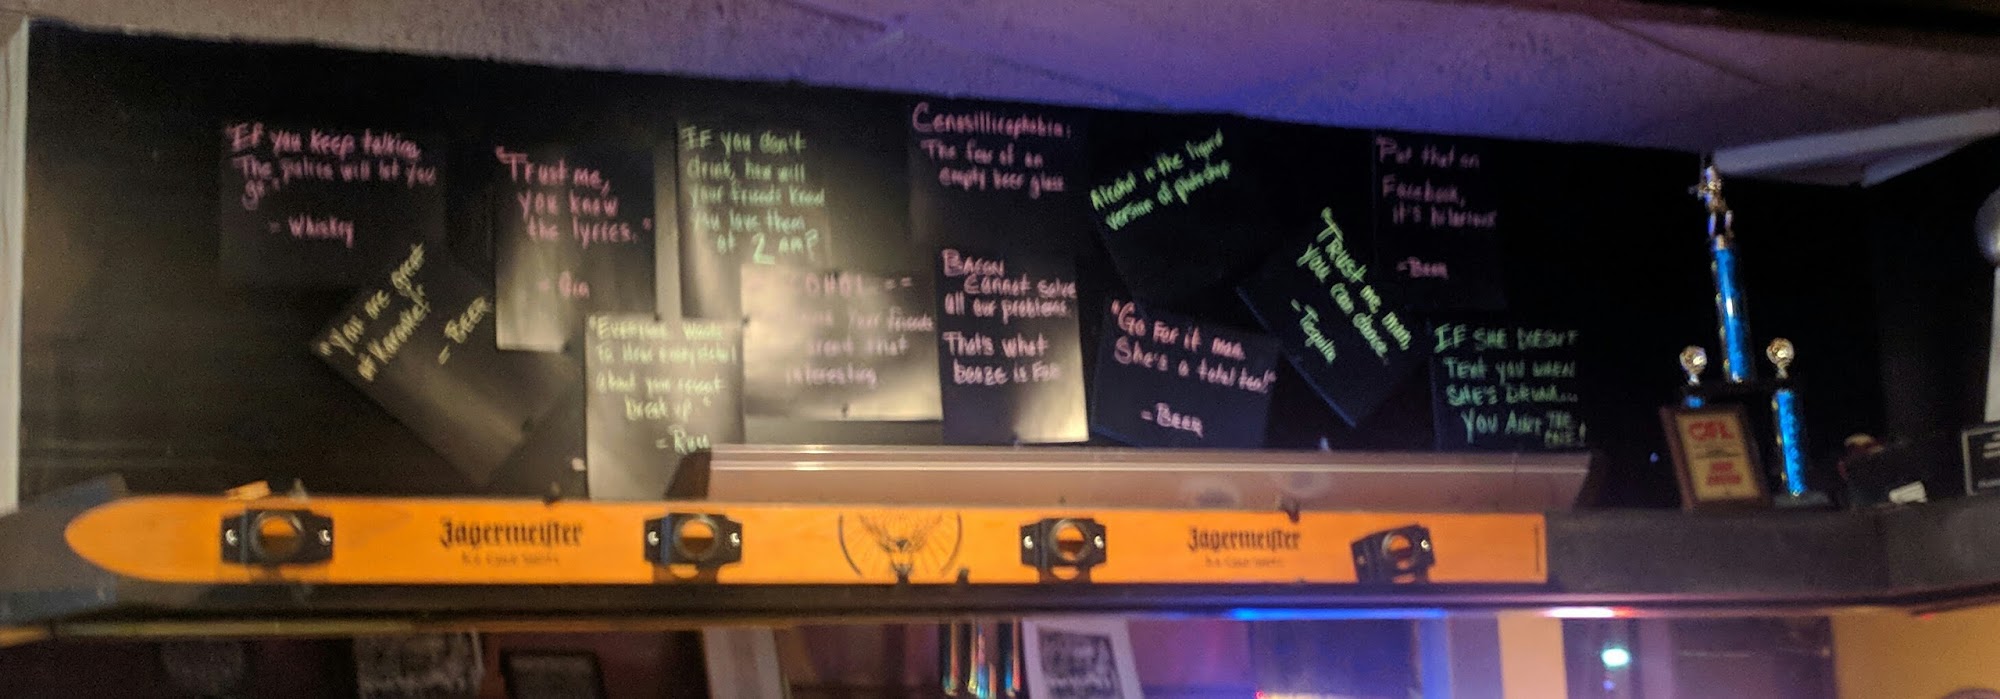 "If you keep talking
The police will let you
go"
- Whiskey
"You are great
at Karaoke!"
- BEER
"Trust me,
you know
the lyrics."
- Gin
IF you don't
drink, how will
your friends know
you love them
at 2 am?
"EVERYONE wants
To Hear every detail
about your recent
break up."
- Rum
because your friends
interesting
Cenosillicaphobia:
The fear of an
empty beer glass
BACON
Cannot solve
all our problems.
That's what
booze is For
Alcohol is the liquid
version of photoshop
"Go For it man.
She's a total ten!"
- BEER
"TRUST me, man,
you can dance."
- Tequila
Put that on
Facebook,
it's hilarious
- Beer
IF SHE DOESN'T
TEXT YOU WHEN
SHE'S DRUNK...
YOU AIN'T THE
ONE!
Jägermeister
Jägermeister